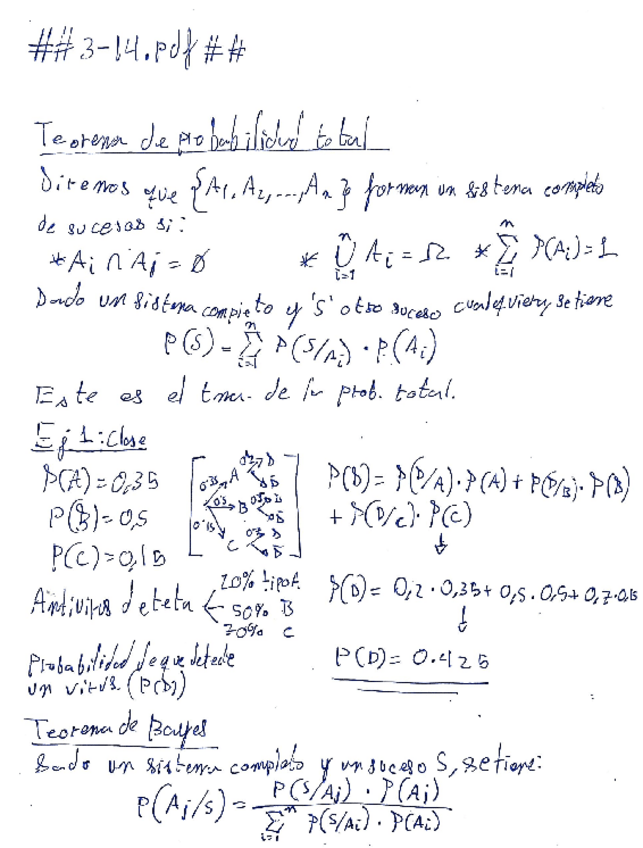 ## 3-14.pdf ##
Teorema de probabilidad total
Diremos que {A1, A2, ..., An} forman un sistema completo
de sucesos si:
* Ai ∩ Aj = Ø * ⋃ⁿᵢ₌₁ Ai = Ω * ∑ⁿᵢ₌₁ P(Ai) = 1
Dado un sistema completo y 'S' otro suceso cualquiera, se tiene
P(S) = ∑ⁿᵢ₌₁ P(S/Ai) · P(Ai)
Este es el tma. de la prob. total.
Ej 1: Clase
P(A) = 0,35
P(B) = 0,5
P(C) = 0,15
0'35 A 0'2 D D̄
0'5 B 0'5 D D̄
0'15 C 0'7 D D̄
P(D) = P(D/A) · P(A) + P(D/B) · P(B)
+ P(D/C) · P(C)
Antivirus deteta 20% tipo A
50% B
70% C
P(D) = 0,2 · 0,35 + 0,5 · 0,5 + 0,7 · 0,15
Probabilidad de que detecte
un virus. (P(D))
P(D) = 0.425
Teorema de Bayes
Dado un sistema completo y un suceso S, se tiene:
P(Aj/S) = P(S/Aj) · P(Aj)
∑ⁿᵢ₌₁ P(S/Ai) · P(Ai)